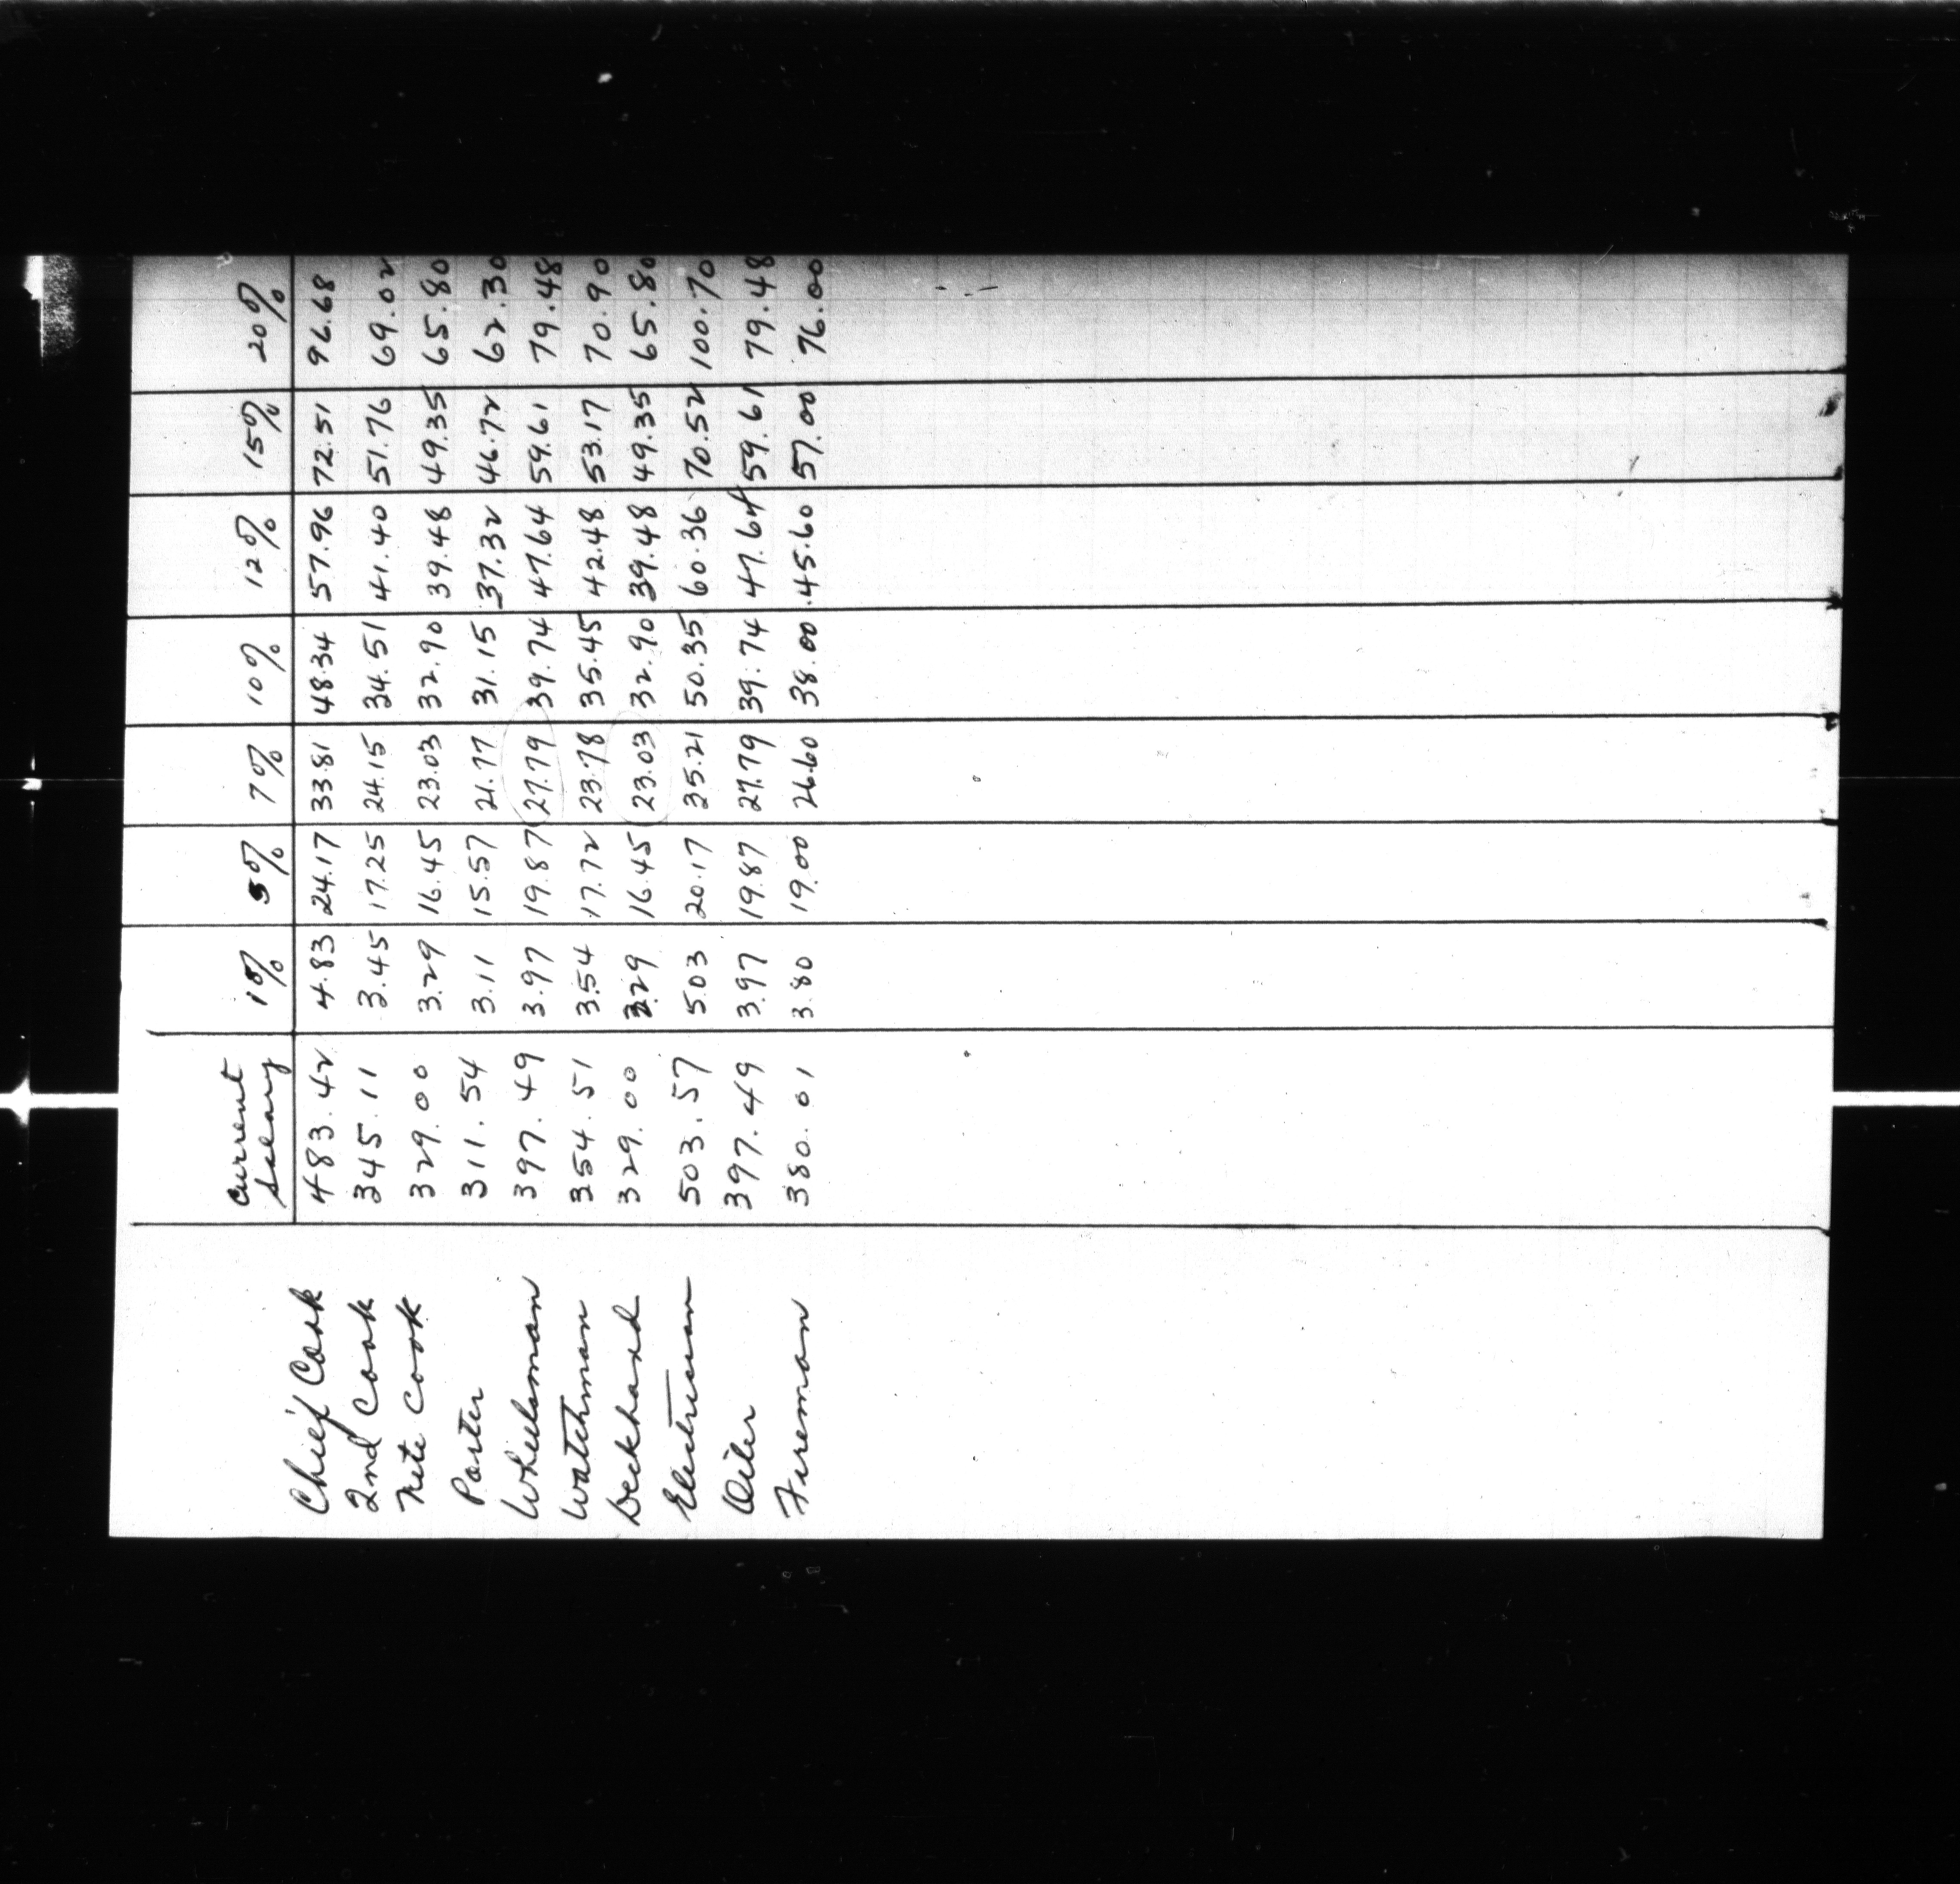 Current Salary 1% 5% 7% 10% 12% 15% 20%
Chief Cook 483.42 4.83 24.17 33.81 48.34 57.96 72.51 96.68
2nd Cook 345.11 3.45 17.25 24.15 34.51 41.40 51.76 69.02
Nite Cook 329.00 3.29 16.45 23.03 32.90 39.48 49.35 65.80
Porter 311.54 3.11 15.57 21.77 31.15 37.32 46.72 62.30
Wheelsman 397.49 3.97 19.87 27.79 39.74 47.64 59.61 79.48
Watchman 354.51 3.54 17.72 23.78 35.45 42.48 53.17 70.90
Deckhand 329.00 3.29 16.45 23.03 32.90 39.48 49.35 65.80
Electrician 503.57 5.03 20.17 35.21 50.35 60.36 70.52 100.70
Oiler 397.49 3.97 19.87 27.79 39.74 47.64 59.61 79.48
Fireman 380.01 3.80 19.00 26.60 38.00 45.60 57.00 76.00